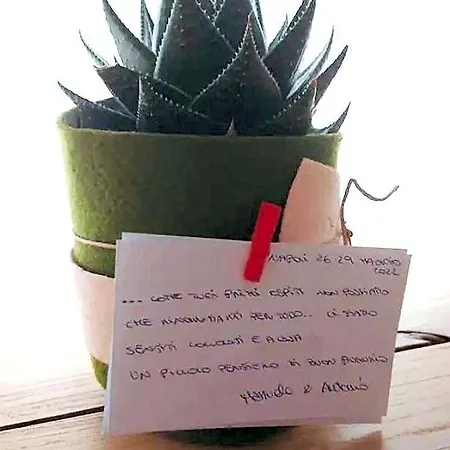 NAPOLI 26 29 MAGGIO
2022
... COME TUOI PRIMI OSPITI NON POSSIAMO
CHE RINGRAZIARTI PER TUTTO.. CI SIAMO
SENTITI COCCOLATI E A CASA
UN PICCOLO PENSIERO DI BUON AUGURIO
Manuela &